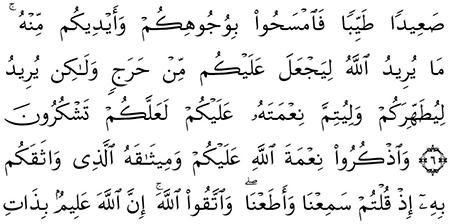 صَعِيدًا طَيِّبًا فَٱمْسَحُوا۟ بِوُجُوهِكُمْ وَأَيْدِيكُم مِّنْهُ ۚ
مَا يُرِيدُ ٱللَّهُ لِيَجْعَلَ عَلَيْكُم مِّنْ حَرَجٍ وَلَـٰكِن يُرِيدُ
لِيُطَهِّرَكُمْ وَلِيُتِمَّ نِعْمَتَهُۥ عَلَيْكُمْ لَعَلَّكُمْ تَشْكُرُونَ
﴿٦﴾ وَٱذْكُرُوا۟ نِعْمَةَ ٱللَّهِ عَلَيْكُمْ وَمِيثَـٰقَهُ ٱلَّذِى وَاثَقَكُم
بِهِۦٓ إِذْ قُلْتُمْ سَمِعْنَا وَأَطَعْنَا ۖ وَٱتَّقُوا۟ ٱللَّهَ ۚ إِنَّ ٱللَّهَ عَلِيمٌۢ بِذَاتِ